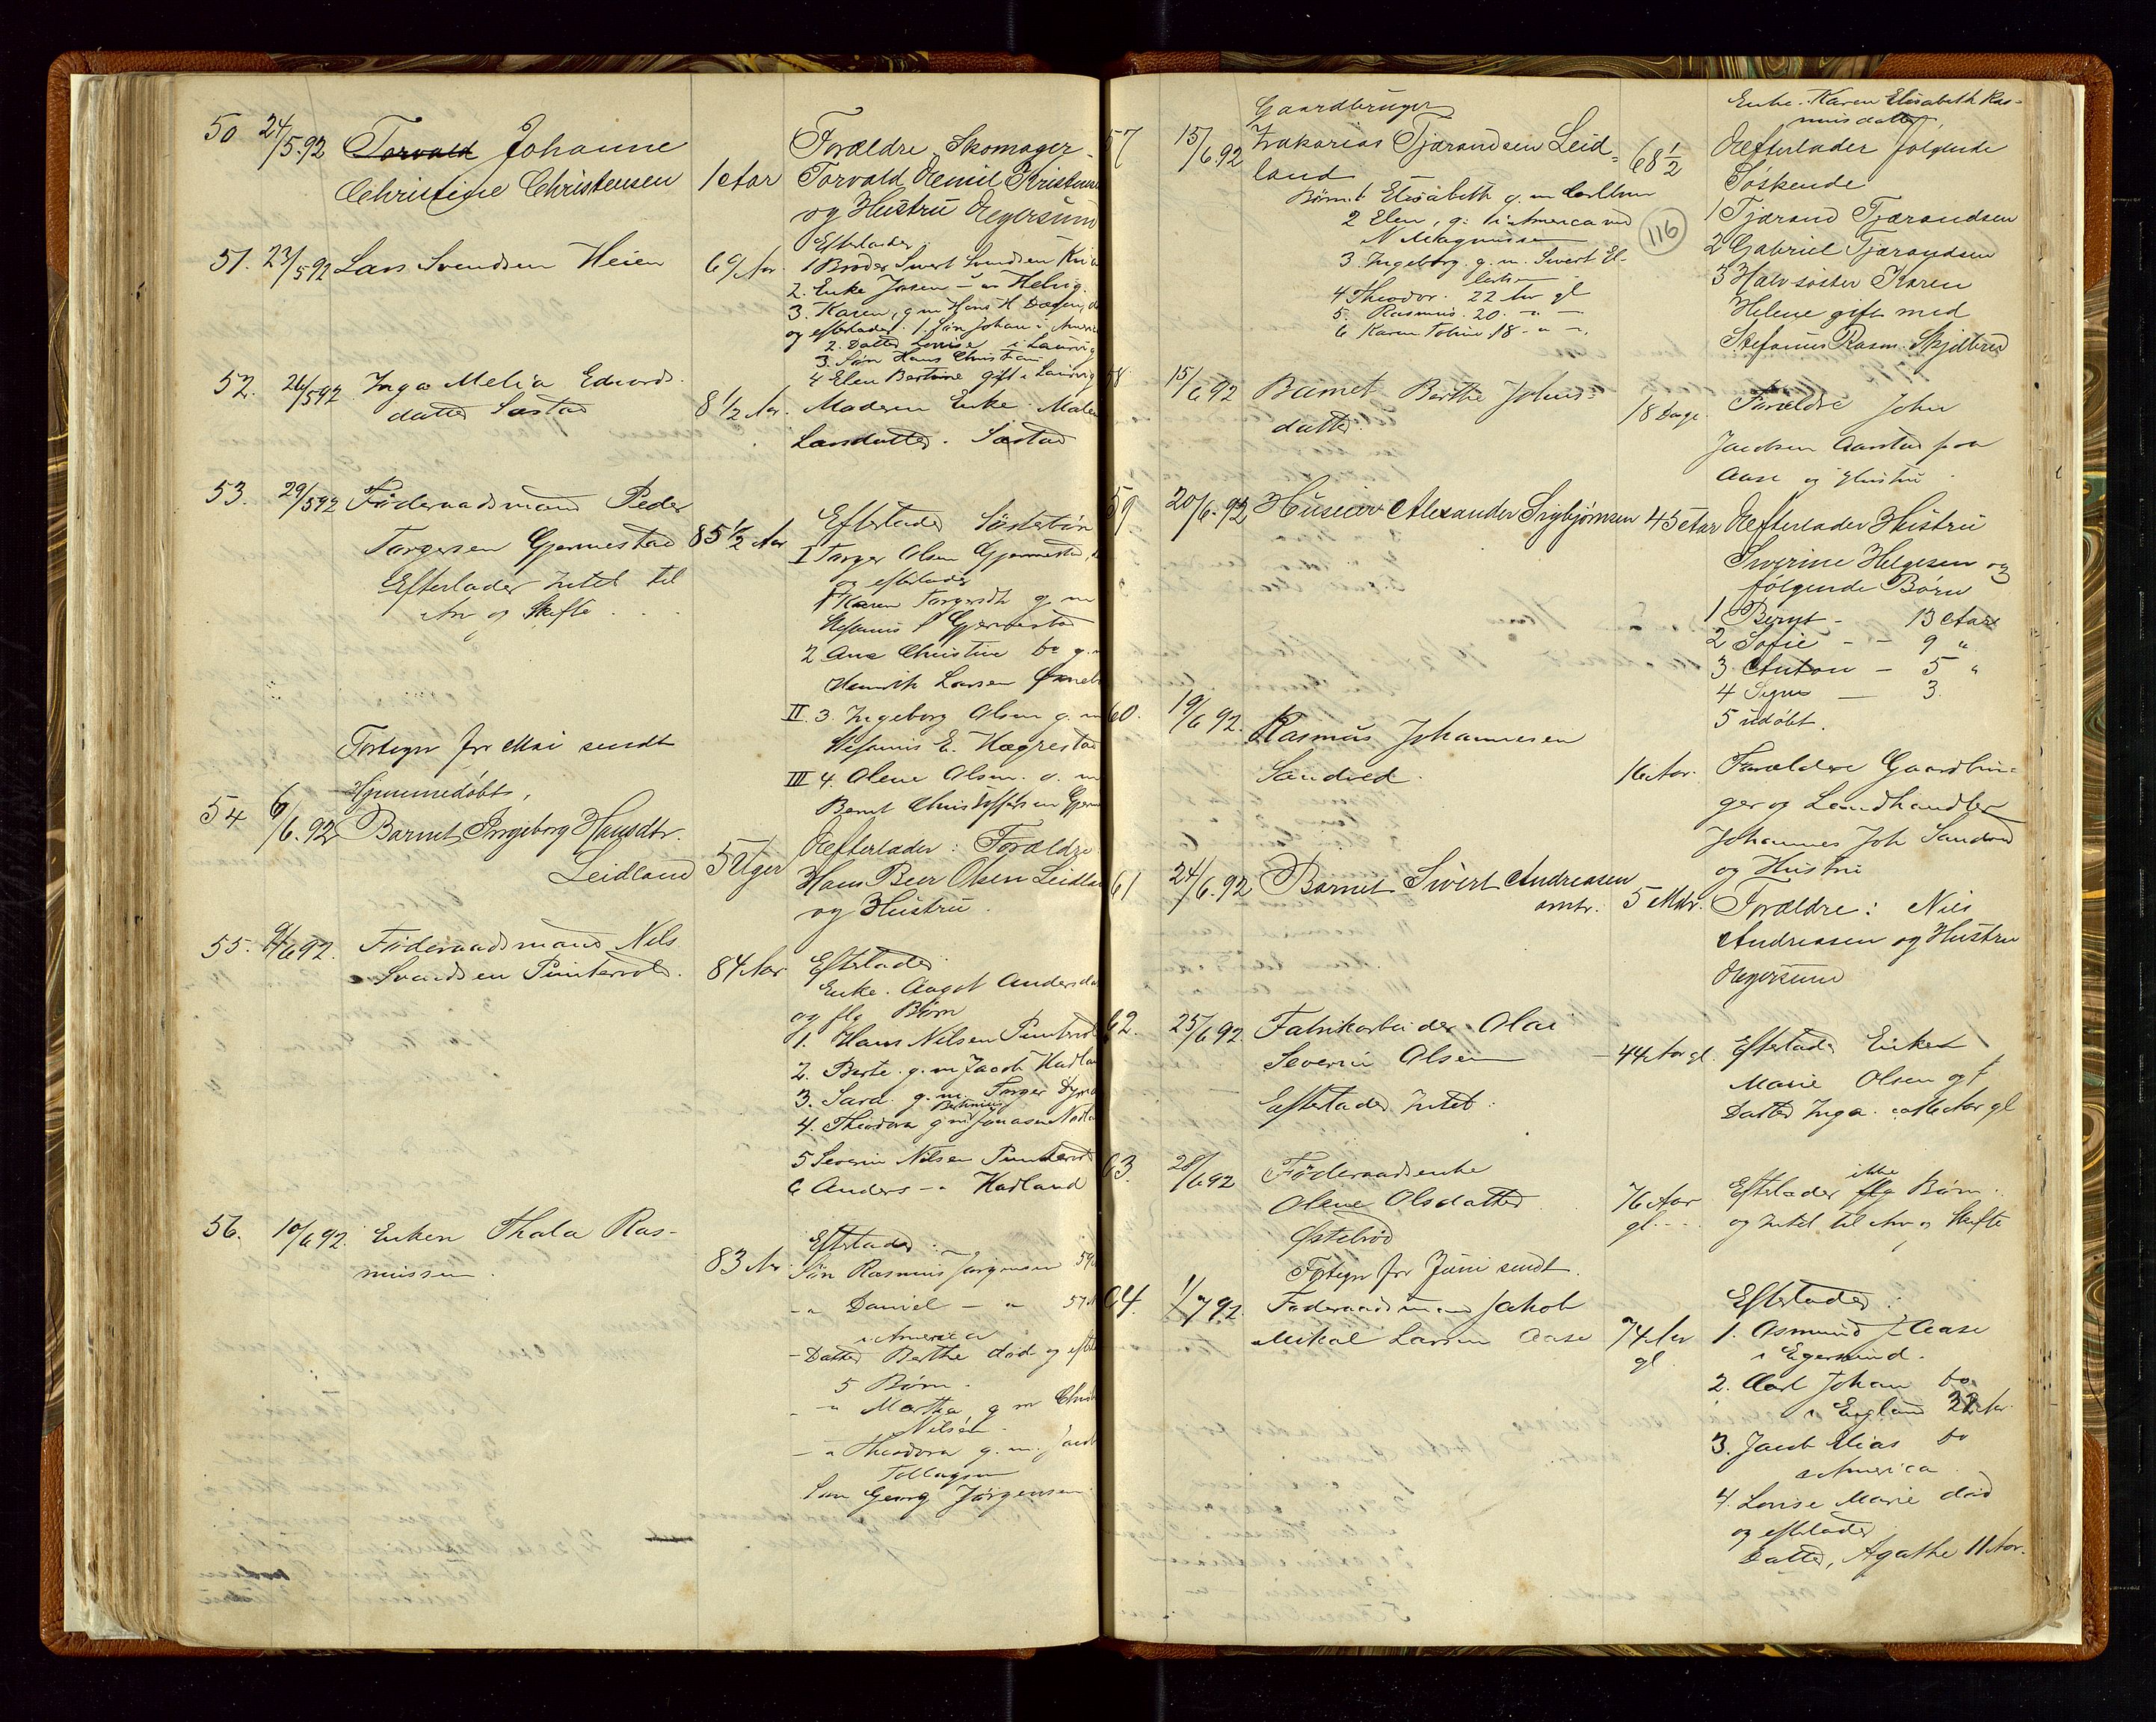 50 24/5.92 Torvald Johanne
Christine Christensen 1 Aar
Forældre Skomager
Torvald Aemil Kristense
og Hustru Aegersund
51. 23/5 92 Lars Svendsen Heien
Efterlader
1 Broder Sivert Svendsen
2. Enke
3. Karen, g m Hans H.
og efterlader. 1. Søn Johan i Ameri
2. Datter Lovise i Laurvig
3. Søn Hans Christian
4 Elen Bertine gift i Laurvig
52. 26/5 92 Inga Melia Edvards
datter Sæstad 8 1/2 Aar.
Moderen Enke Malen
Larsdatter. Sæstad
53. 29/5 92 Föderaadsmand Peder
Torgersen Gjermestad 85 1/2 Aar
Efterlader Intet til
Arv og Skifte
Efterlader Søsterbørn
I Torger Olsen Gjermestad
og efterlader
1 Karen Torgersdt g m
Stefanus Gjermestad
2 Ane Christine do g m
Henrik Larsen
II. 3. Ingeborg Olsen g. m
Stefanus E. Hægrestad
III 4. Olene Olsen. g. m
Bernt Christoffersen
Fortegn for Mai sendt
Hjemmedøbt,
54 6/6.92 Barnet Ingeborg Hansdtr.
Leidland 5 Uger
Aefterlader: Forældre
Hans Peer Olsen Leidla
og Hustru.
55. 9/6 92. Föderaadsmand Nils
Svendsen Puntervold. 84 Aar
Efterlader
Enke. Aagot Andersda
og flg Børn
1. Hans Nilsen Puntervol
2. Berte. g. m Jacob Hadlan
3. Sara. g. m. Torger
4. Theodora g m Bertinius Jonasen
5 Severin Nilsen Puntervo
6 Anders -"- Hadland
56. 10/6 92. Enken Thala Ras-
mussen. 83 Aar
Efterlader:
Søn Rasmus Jørgensen 59
-" Daniel -" 57
i America
-Datter Berthe död og efte
5 Børn.
-" Martha g m
Nilsen.
-" Theodora g. m.
Tollagsen
Søn Georg Jørgensen
57 15/6.92 Gaardbruger
Zakarias Tjærandsen Leid-
land 68 1/2
Börn: 1 Elisabeth g. m
2 Elen, g. i America med
N Magnussen
3. Ingeborg. g. m. Sivert El-
lertsen
4 Theodor. 22 Aar gl
5. Rasmus. 20. -"-
6 Karen Tobine 18 -"-
116
Enke: Karen Elisabeth Ras-
musdatter,
Aefterlader følgende
Søskende
1 Tjærand Tjærandsen
2 Gabriel Tjærandsen
3 Halvsøster Karen
Helene gift med
Stefanus Rasm. Skjelbred
58 15/6 92 Barnet Berthe Johns-
datter. 18 Dage.
Forældre John
Jacobsen Aarstad paa
Aase og Hustru
59 20/6.92 Huseier Alexander Sigbjørnsen 45 Aar
Aefterlader Hustru
Siverine Helgesen og
følgende Børn
1 Bernt - 13 Aar
2 Sofie - - 9 "
3 Anton - 5 "
4 Signe - 3.
5 udöbt.
60. 19/6 92. Rasmus Johannesen
Sandved. 16 Aar.
Forældre Gaardbru-
ger og Landhandler
Johannes Joh Sandved
og Hustru
61 24/6.92 Barnet Sivert Andreasen
5 Mdr.
Forældre: Nils
Andreasen og Hustru
Aegersund
62. 25/6 92. Fabrikarbeider Olai
Severin Olsen 44 Aar gl.
Efterlader Intet.
Efterlader Enken
Marie Olsen og
Datter Inga. 16 Aar gl
63. 28/6 92 Föderaadsenke
Olene Olsdatter
Østebrød 76 Aar
gl.
Efterlader ikke flg Børn.
og Intet til Arv og Skifte
Fortegn for Juni sendt.
64. 1/7 92. Føderaadsmand Jakob
Mikal Larsen Aase 74 Aar
gl
Efterlader:
1. Asmund J. Aase
i Egersund.
2. Carl Johan do
i England 32 Aar.
3. Jacob Elias do
America.
4. Lovise Marie död
og efterlader
Datter, Agathe 11 Aar.